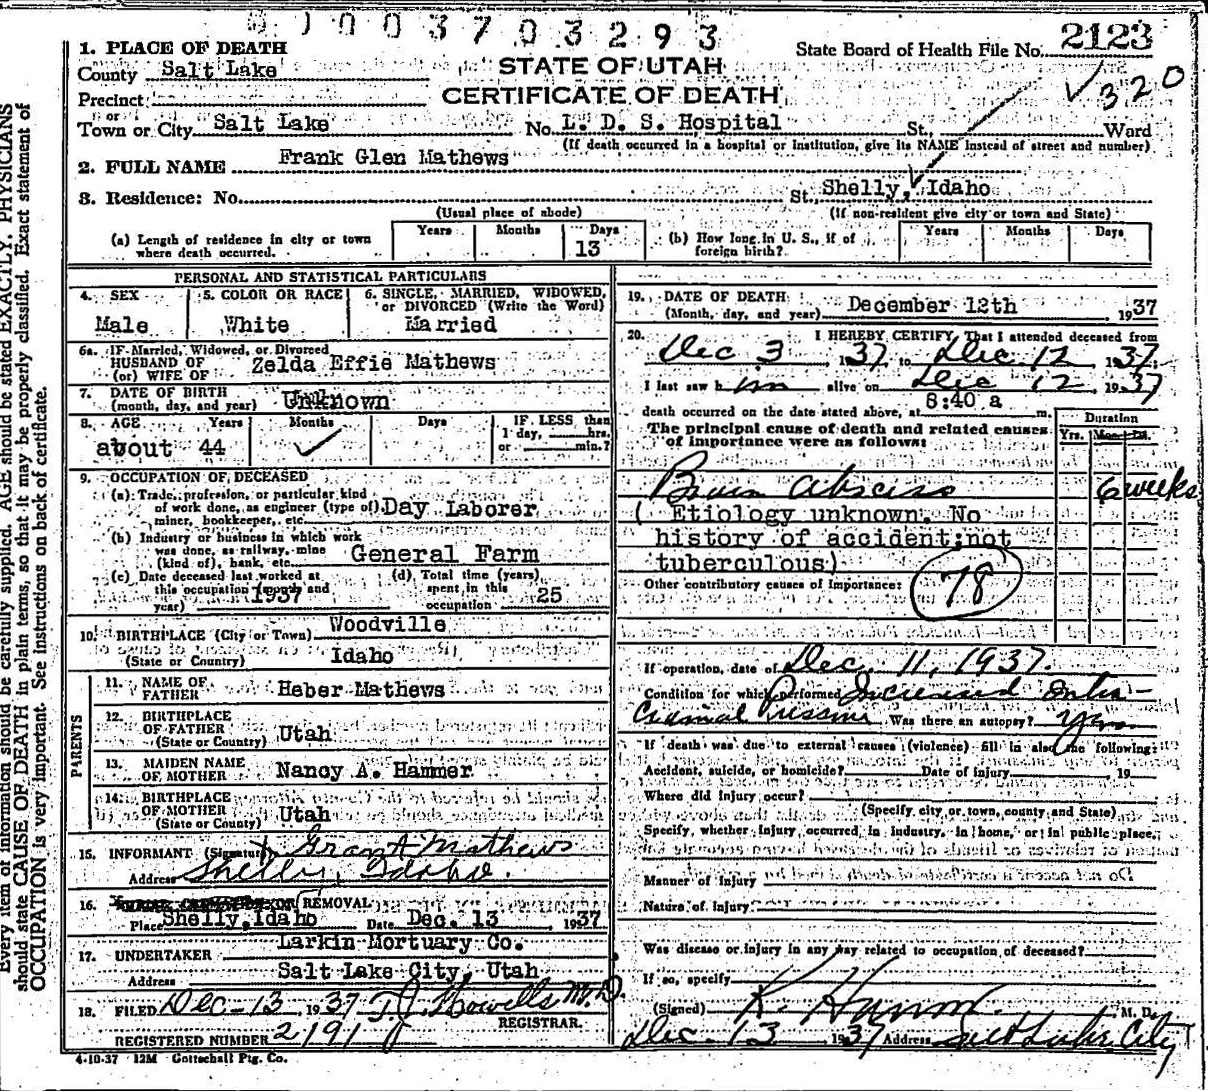 1003703293
1. PLACE OF DEATH
State Board of Health File No. 2123
County Salt Lake
STATE OF UTAH
Precinct
CERTIFICATE OF DEATH
320
or
Town or City Salt Lake No. L. D. S. Hospital St., Ward
(If death occurred in a hospital or institution, give its NAME instead of street and number)
2. FULL NAME Frank Glen Mathews
3. Residence: No. St., Shelly, Idaho
(Usual place of abode) (If non-resident give city or town and State)
(a) Length of residence in city or town where death occurred. Years Months Days 13
(b) How long in U. S., if of foreign birth? Years Months Days
PERSONAL AND STATISTICAL PARTICULARS
4. SEX Male
5. COLOR OR RACE White
6. SINGLE, MARRIED, WIDOWED, or DIVORCED (Write the Word) Married
6a. If Married, Widowed, or Divorced
HUSBAND OF
(or) WIFE OF Zelda Effie Mathews
7. DATE OF BIRTH
(month, day, and year) Unknown
8. AGE Years Months Days IF LESS than
1 day, hrs.
or min.?
about 44
9. OCCUPATION OF DECEASED
(a) Trade, profession, or particular kind
of work done, as engineer (type of) Day Laborer
miner, bookkeeper, etc.
(b) Industry or business in which work
was done, as railway, mine General Farm
(kind of), bank, etc.
(c) Date deceased last worked at
this occupation (month and
year) 1937
(d) Total time (years)
spent in this
occupation 25
10. BIRTHPLACE (City or Town) Woodville
(State or Country) Idaho
PARENTS
11. NAME OF
FATHER Heber Mathews
12. BIRTHPLACE
OF FATHER
(State or Country) Utah
13. MAIDEN NAME
OF MOTHER Nancy A. Hammer
14. BIRTHPLACE
OF MOTHER
(State or Country) Utah
15. INFORMANT (Signature) Grant Mathews
Address Shelly, Idaho.
16. OR REMOVAL
Place Shelly, Idaho Date Dec. 13, 1937
17. UNDERTAKER Larkin Mortuary Co.
Address Salt Lake City, Utah
18. FILED Dec-13, 1937 T J Howells M.D.
REGISTRAR.
REGISTERED NUMBER 2191
4-10-37 12M Gottschall Ptg. Co.
19. DATE OF DEATH
(Month, day, and year) December 12th, 1937
20. I HEREBY CERTIFY, That I attended deceased from
Dec 3, 1937, to Dec 12, 1937.
I last saw him alive on Dec 12, 1937
8:40 a
death occurred on the date stated above, at m.
The principal cause of death and related causes
of importance were as follows:
Duration
Yrs. Mos. Ds.
Brain Abscess 6 weeks
(Etiology unknown. No
history of accident; not
tuberculous)
Other contributory causes of importance:
78
If operation, date of Dec. 11, 1937.
Condition for which performed Increased Intra-
Cranial Pressure Was there an autopsy? Yes
If death was due to external causes (violence) fill in also the following:
Accident, suicide, or homicide? Date of injury 19
Where did injury occur?
(Specify city or town, county and State)
Specify whether injury occurred in industry, in home, or in public place.
Manner of injury
Nature of injury
Was disease or injury in any way related to occupation of deceased?
If so, specify
(Signed) M. D.
Dec. 13 1937 Address Salt Lake City
Every item of information should be carefully supplied. AGE should be stated EXACTLY. PHYSICIANS
should state CAUSE OF DEATH in plain terms, so that it may be properly classified. Exact statement of
OCCUPATION is very important. See instructions on back of certificate.